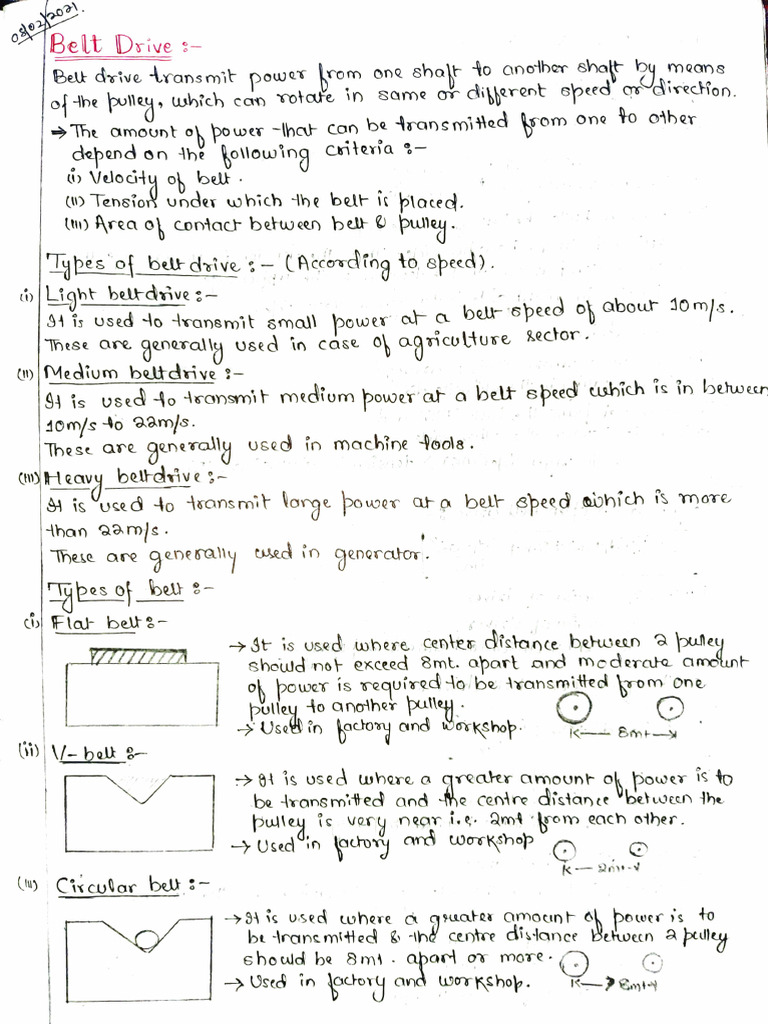 03/02/2021.
Belt Drive :-
Belt drive transmit power from one shaft to another shaft by means
of the pulley, which can rotate in same or different speed or direction.
→ The amount of power that can be transmitted from one to other
depend on the following criteria :-
(i) Velocity of belt.
(ii) Tension under which the belt is placed.
(iii) Area of contact between belt & pulley.
Types of belt drive :- (According to speed).
(i) Light belt drive :-
It is used to transmit small power at a belt speed of about 10m/s.
These are generally used in case of agriculture sector.
(ii) Medium belt drive :-
It is used to transmit medium power at a belt speed which is in between
10m/s to 22m/s.
These are generally used in machine tools.
(iii) Heavy belt drive :-
It is used to transmit large power at a belt speed which is more
than 22m/s.
These are generally used in generator.
Types of belt :-
(i) Flat belt :-
→ It is used where center distance between 2 pulley
should not exceed 8mt. apart and moderate amount
of power is required to be transmitted from one
pulley to another pulley.
→ Used in factory and workshop.
8mt
(ii) V-belt :-
→ It is used where a greater amount of power is to
be transmitted and the centre distance between the
pulley is very near i.e. 2mt from each other.
→ Used in factory and workshop
2mt
(iii) Circular belt :-
→ It is used where a greater amount of power is to
be transmitted & the centre distance between 2 pulley
should be 8mt. apart or more.
→ Used in factory and workshop.
8mt